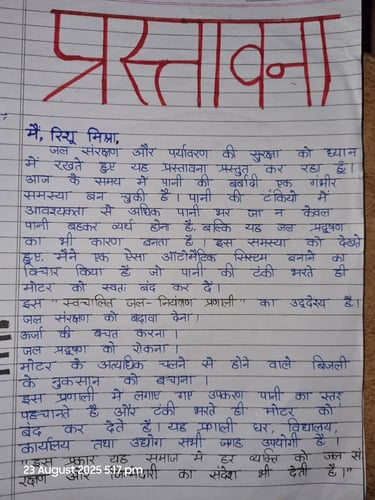 प्रस्तावना
मैं, रिशू मिश्रा,
जल संरक्षण और पर्यावरण की सुरक्षा को ध्यान
में रखते हुए यह प्रस्तावना प्रस्तुत कर रहा हूँ।
आज के समय में पानी की बर्बादी एक गंभीर
समस्या बन चुकी है। पानी की टंकियों में
आवश्यकता से अधिक पानी भर जा न केवल
पानी बहकर व्यर्थ होना है, बल्कि यह जल प्रदूषण
का भी कारण बनता है। इस समस्या को देखते
हुए, मैंने एक ऐसा ऑटोमैटिक सिस्टम बनाने का
विचार किया है जो पानी की टंकी भरते ही
मोटर को स्वतः बंद कर दें।
इस "स्वचालित जल-नियंत्रण प्रणाली" का उद्देश्य है।
जल संरक्षण को बढ़ावा देना।
ऊर्जा की बचत करना।
जल प्रदूषण को रोकना।
मोटर के अत्यधिक चलने से होने वाले बिजली
के नुकसान को बचाना।
इस प्रणाली में लगाए गए उपकरण पानी का स्तर
पहचानते है और टंकी भरते ही मोटर को
बंद कर देते हैं। यह प्रणाली घर, विद्यालय,
कार्यालय तथा उद्योग सभी जगह उपयोगी है।
इस प्रकार यह समाज में हर व्यक्ति को जल सं
रक्षण और का संदेश भी देती है।"
23 August 2025 5:17 pm